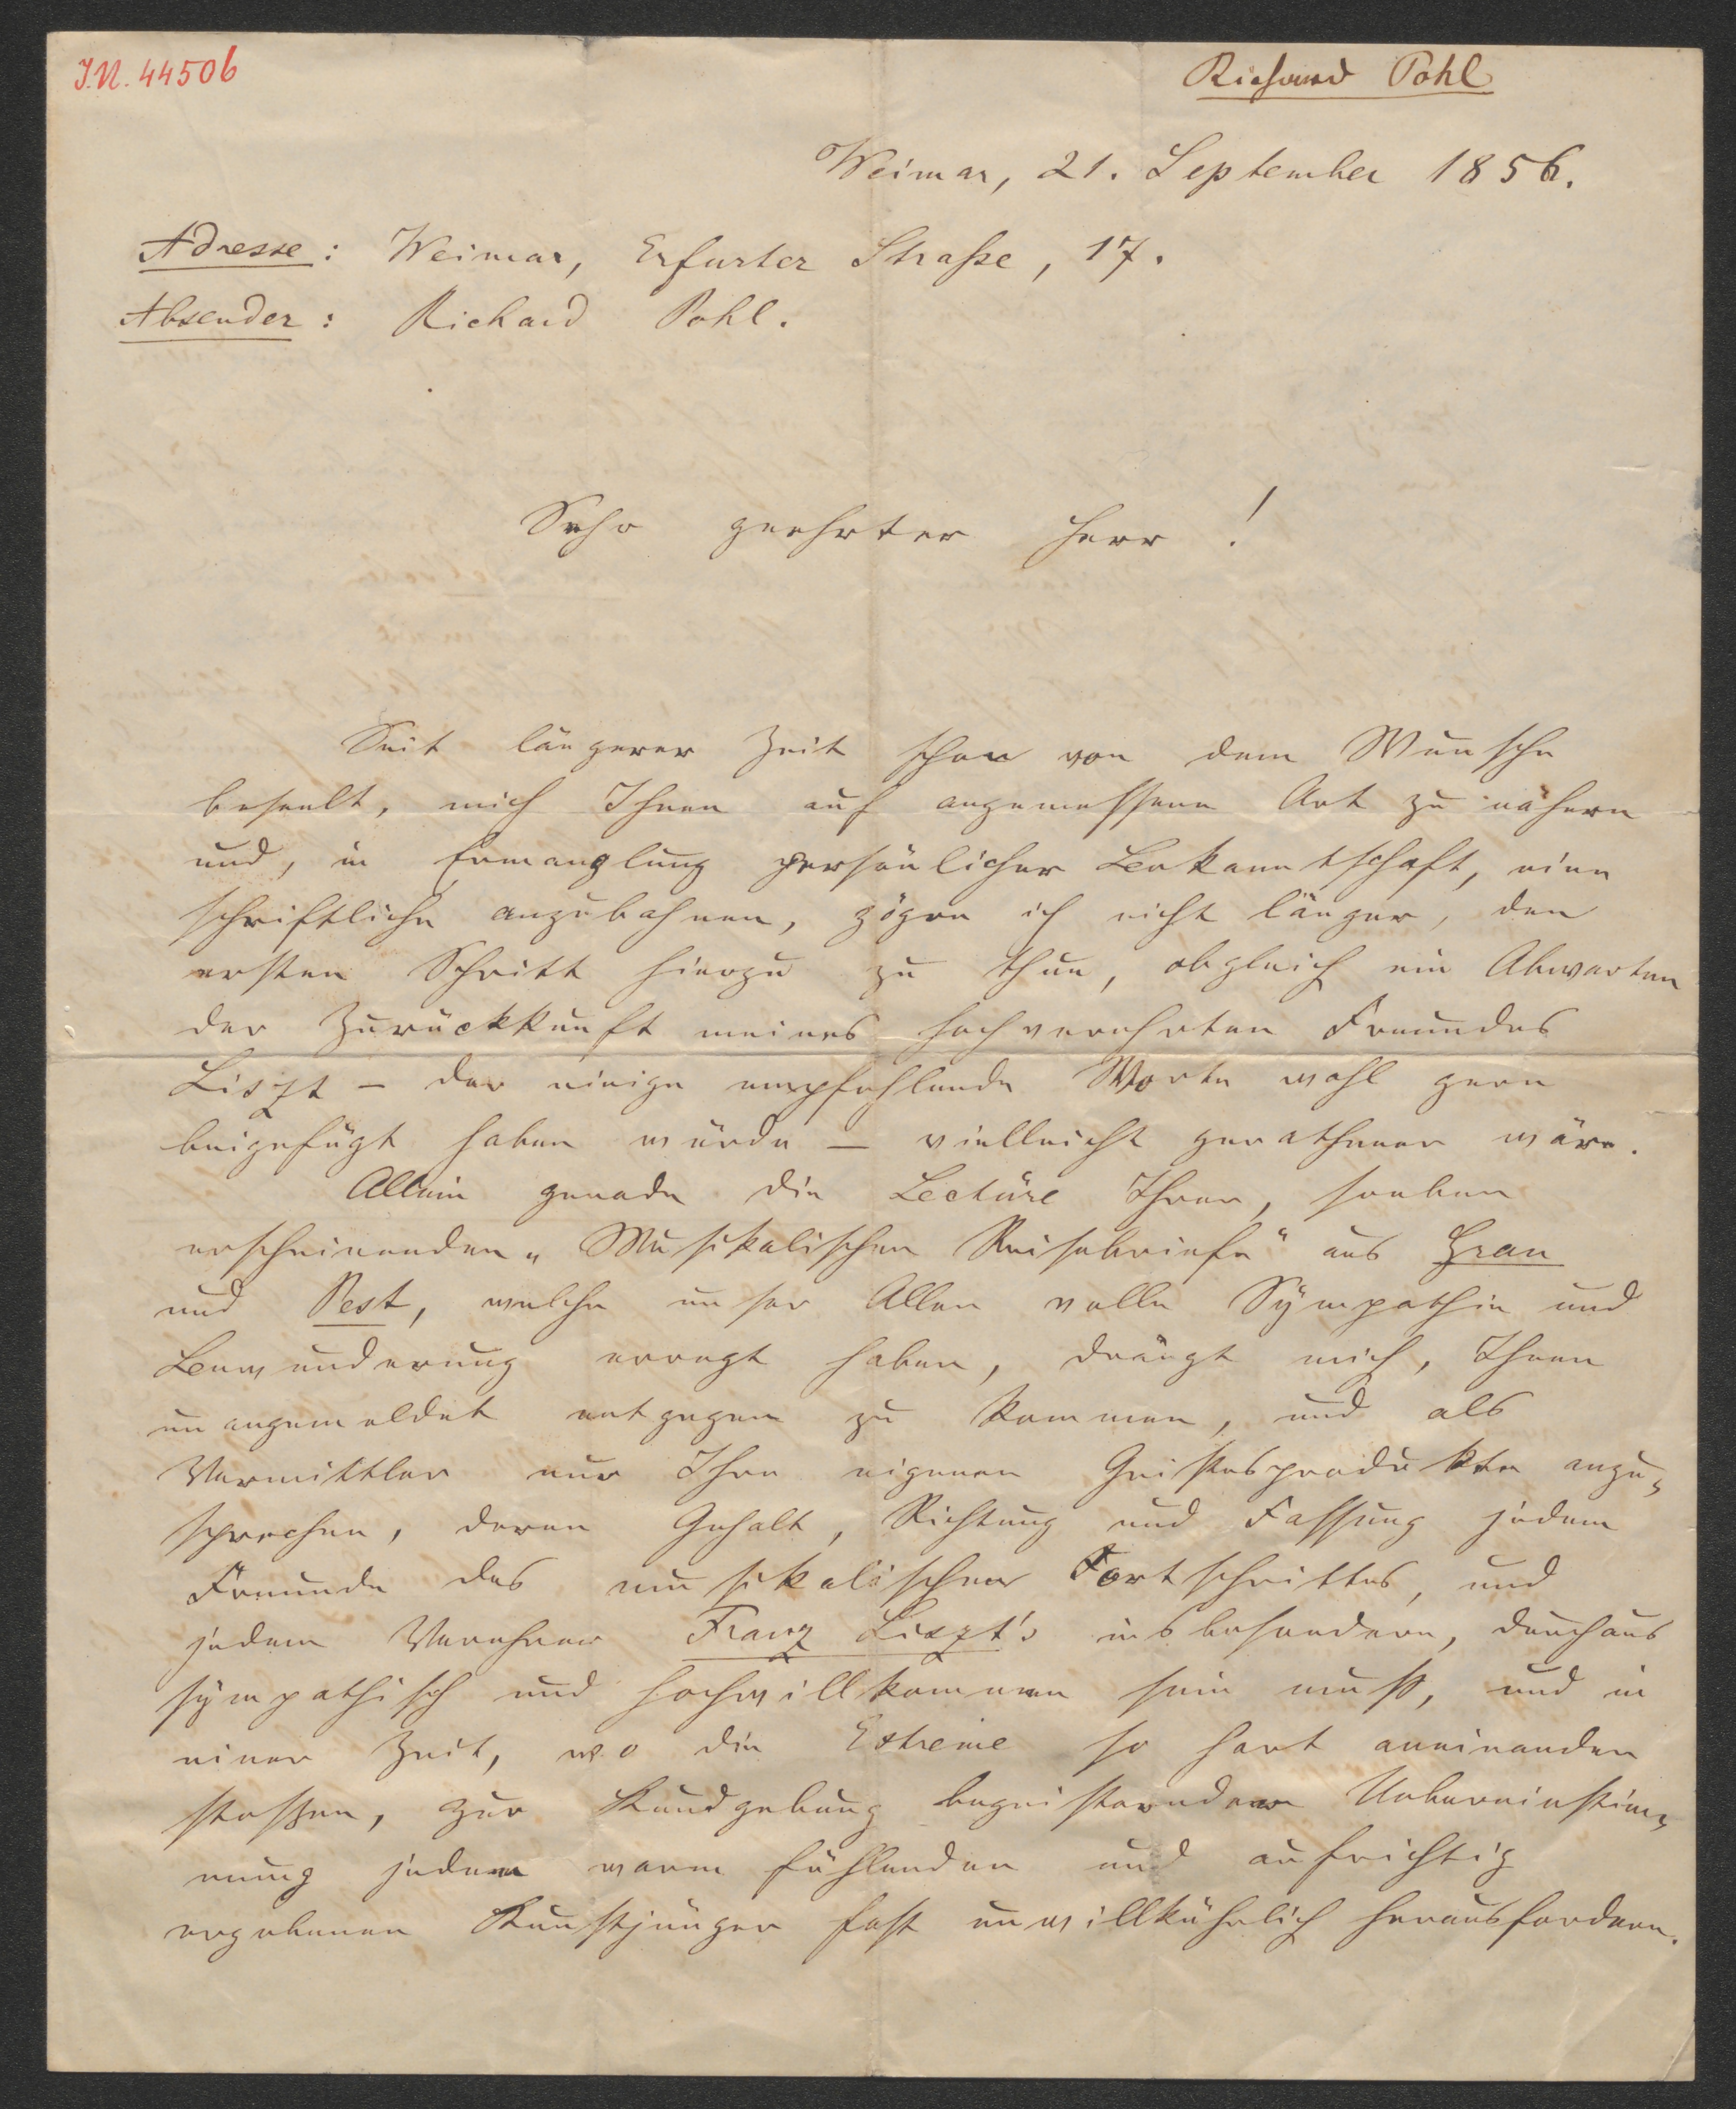 J.N. 44506
Richard Pohl
Weimar, 21. September 1856.
Adresse: Weimar, Erfurter Straße, 17.
Absender: Richard Pohl.
Sehr geehrter Herr!
Seit längerer Zeit schon von dem Wunsche
beseelt, mich Ihnen auf angemessene Art zu nähern
und, in Ermanglung persönlicher Bekanntschaft, eine
schriftliche anzubahnen, zögre ich nicht länger, den
ersten Schritt hierzu zu thun, obgleich ein Abwarten
der Zurückkunft meines hochverehrten Freundes
Liszt – der einige empfehlende Worte wohl gern
beigefügt haben würde – vielleicht gerathener wäre.
Allein gerade die Lectüre Ihrer, soeben
erscheinenden „Musikalischen Reisebriefe“ aus Gran
und Pest, welche unser Aller volle Sympathie und
Bewunderung erregt haben, drängt mich, Ihnen
unangemeldet entgegen zu kommen, und als
Vermittler nur Ihre eigenen Geistesprodukte anzu-
sprechen, deren Gehalt, Richtung und Fassung jedem
Freunde des musikalischen Fortschrittes, und
jedem Verehrer Franz Liszt's insbesondere, durchaus
sympathisch und hochwillkommen sein muß, und in
einer Zeit, wo die Extreme so hart aneinander
stoßen, zur Kundgebung begeisternder Uebereinstim-
mung jeden warm fühlenden und aufrichtig
ergebenen Kunstjünger fast unwillkührlich herausfordern.